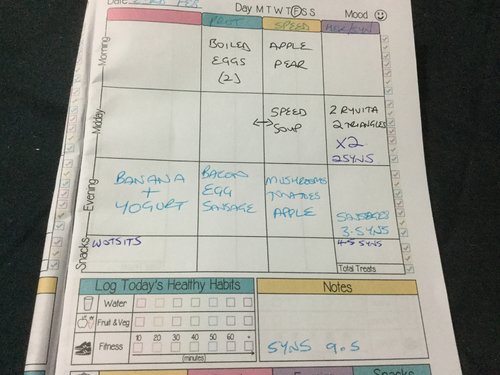 Date
Day M T W T F S S
Mood
PROT
SPEED
Morning
BOILED
EGGS
(2)
APPLE
PEAR
Midday
SPEED
SOUP
2 RYVITA
2 TRIANGLES
X2
2 SYNS
Evening
BANANA
+
YOGURT
BACON
EGG
SAUSAGE
MUSHROOMS
TOMATOES
APPLE
SAUSAGES
3.5 SYNS
Snacks
WOTSITS
4.5 SYNS
Total Treats
Log Today's Healthy Habits
Water
Fruit & Veg
Fitness
10 20 30 40 50 60 +
(minutes)
Notes
SYNS 9.5
Snacks